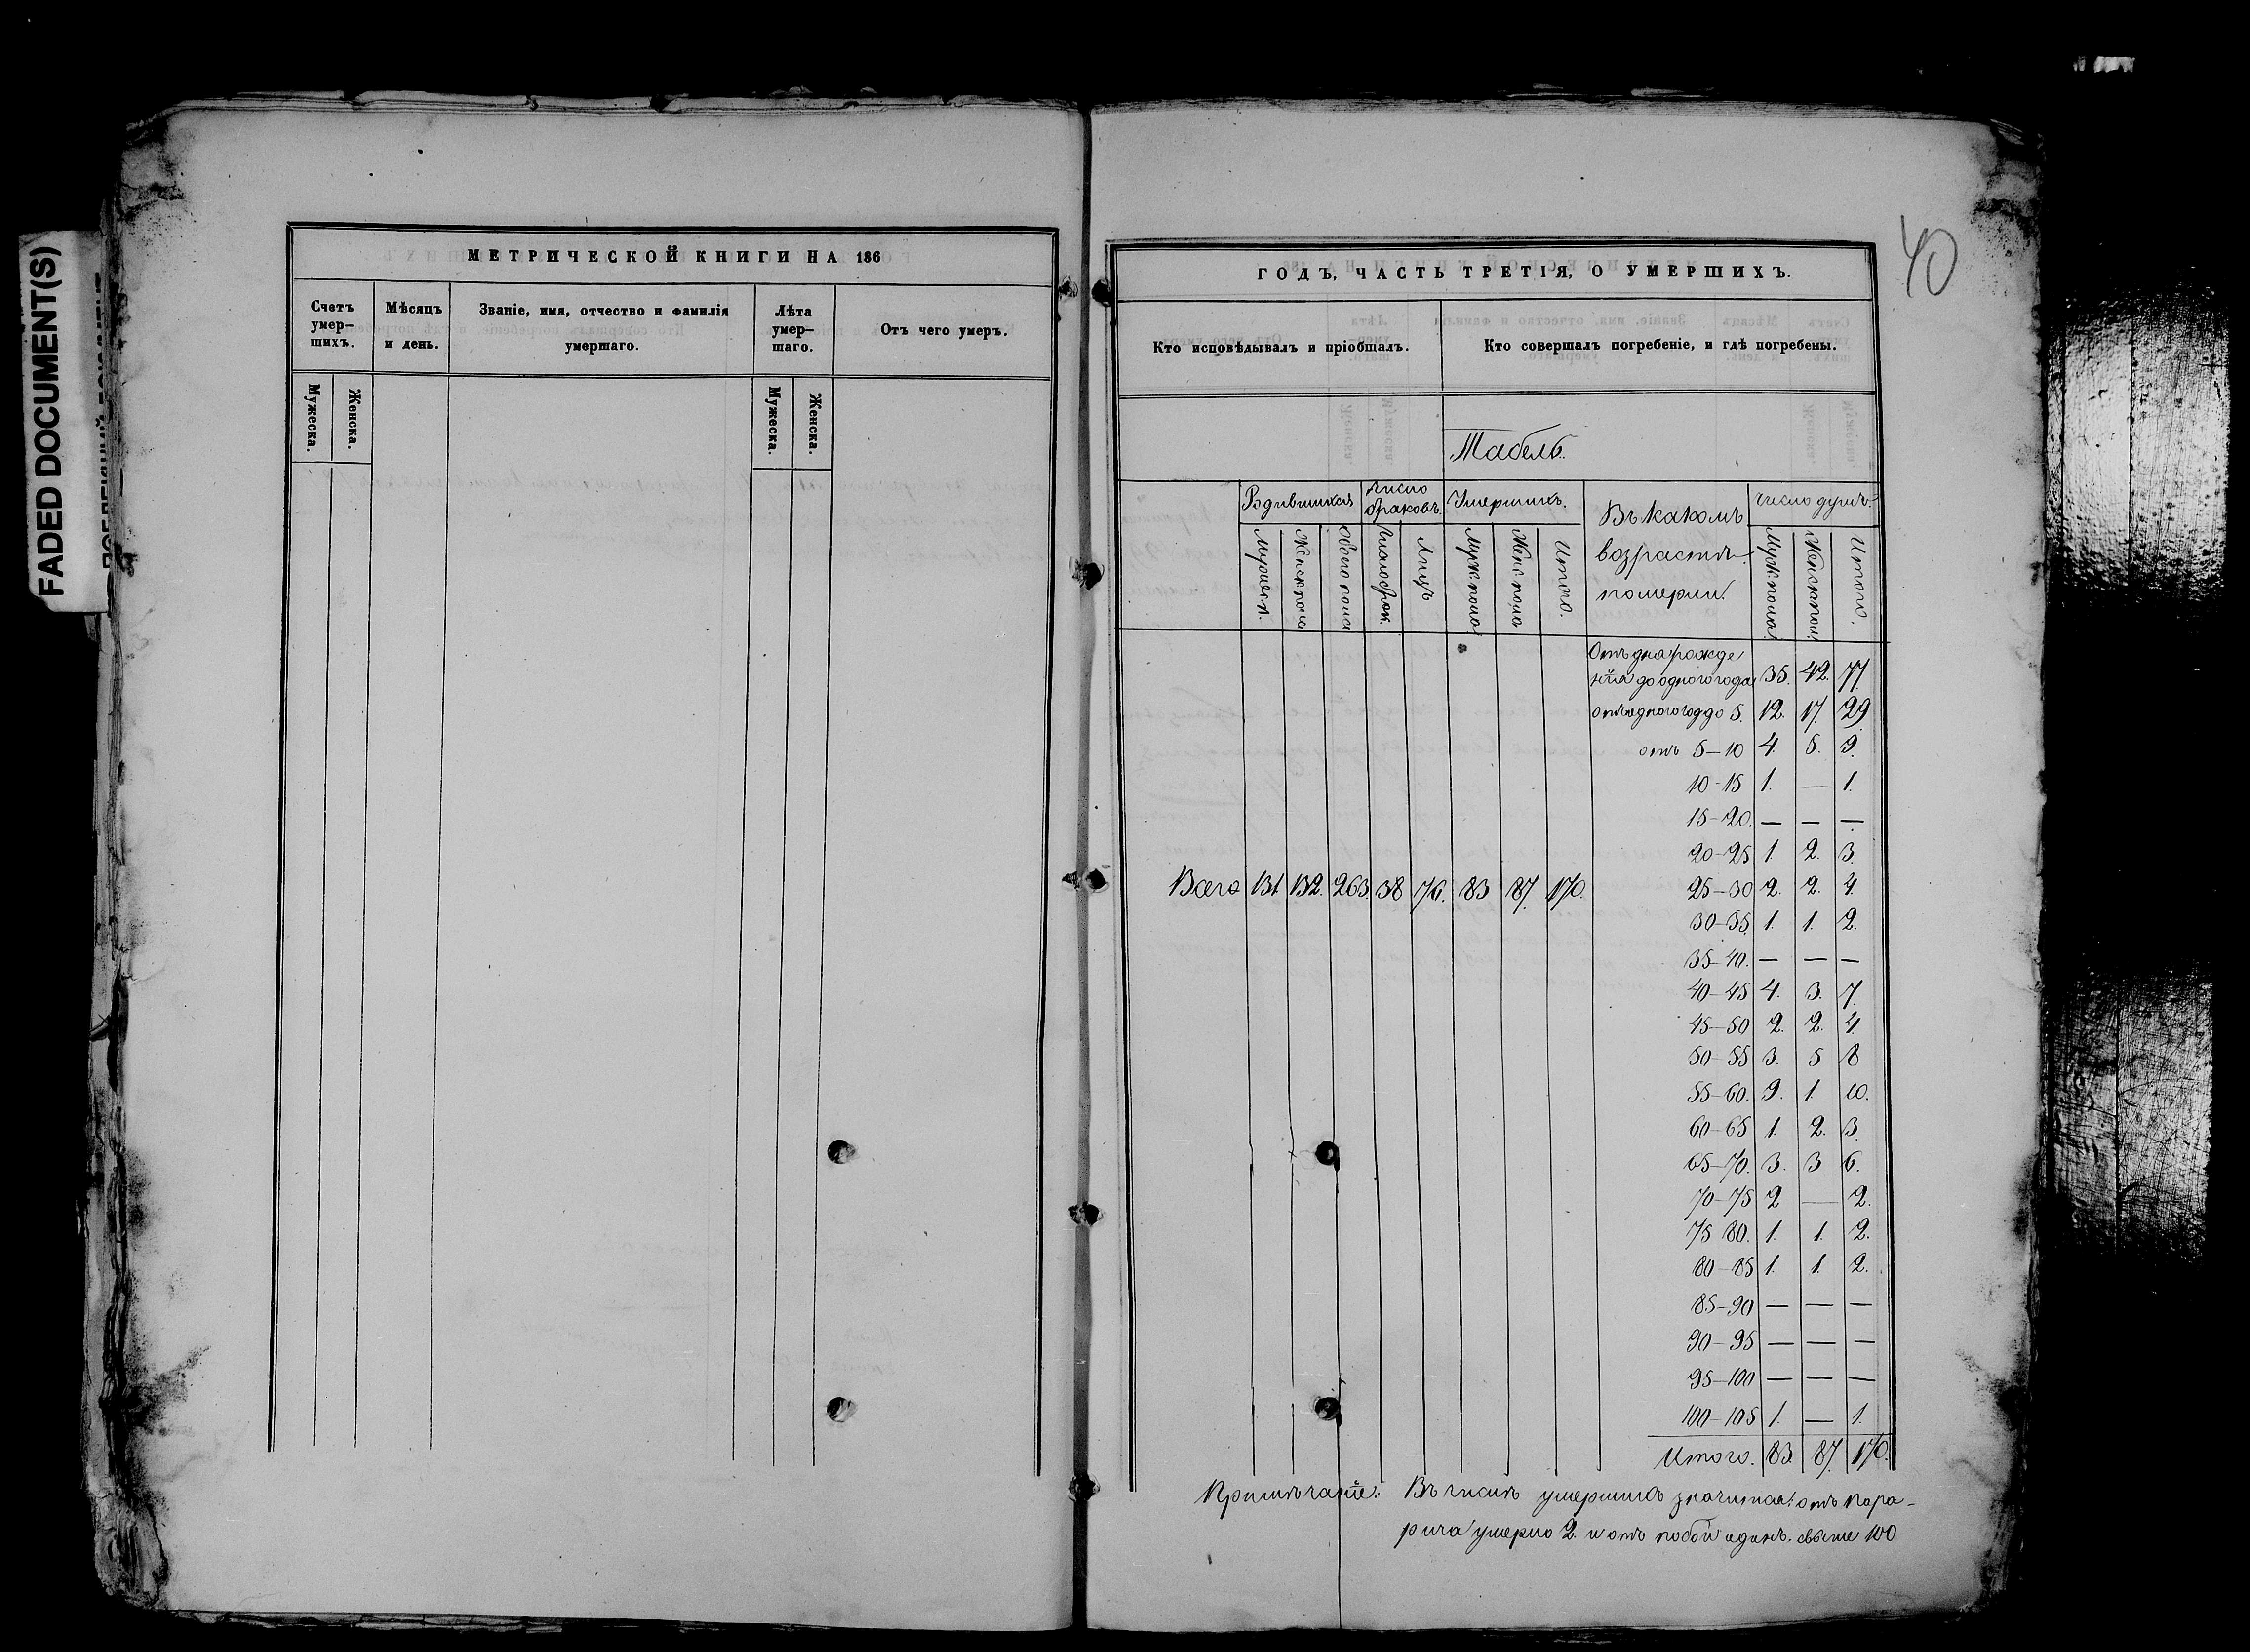 FADED DOCUMENT(S)
МЕТРИЧЕСКОЙ КНИГИ НА 186
Счетъ умер-
шихъ.
Мѣсяцъ
и день.
Званіе, имя, отчество и фамилія
умершаго.
Лѣта
умер-
шаго.
Отъ чего умеръ.
Мужеска.
Женска.
Мужеска.
Женска.
40
ГОДЪ, ЧАСТЬ ТРЕТІЯ, О УМЕРШИХЪ.
Кто исповѣдывалъ и пріобщалъ.
Кто совершалъ погребеніе, и гдѣ погребены.
Табель.
Родившихся
Число
браковъ.
Умершихъ.
Въ какомъ
возрастѣ
померли.
Число душъ.
Мужеск.
Женск пола
Обоего пола
Число брак.
Лицъ
Муж. пола
Жен. пола
Итого.
Муж. пола
Женска пол.
Итого.
Отъ дна рожде
нія до одного года 35. 42. 77.
отъ одного год до 5. 12. 17. 29.
отъ 5–10 4. 5. 9.
10–15 1. — 1.
15–20. — — —
20–25 1. 2. 3.
Всего 131 132. 263. 38 76. 83 87. 170. 25–30 2. 2. 4.
30–35 1. 1. 2.
35–40. — — —
40–45 4. 3. 7.
45–50 2. 2. 4.
50–55 3. 5 8
55–60. 9. 1. 10.
60–65 1. 2. 3.
65–70. 3. 3 6.
70–75 2 — 2.
75 80. 1. 1. 2.
80–85 1. 1. 2.
85–90 — — —
90–95 — — —
95–100 — — —
100–105 1. — 1.
Итого. 83. 87. 170.
Примѣчаніе: Въ числѣ умершихъ значится: отъ пара-
рича умерло 2. и отъ побой одинъ. свыше 100